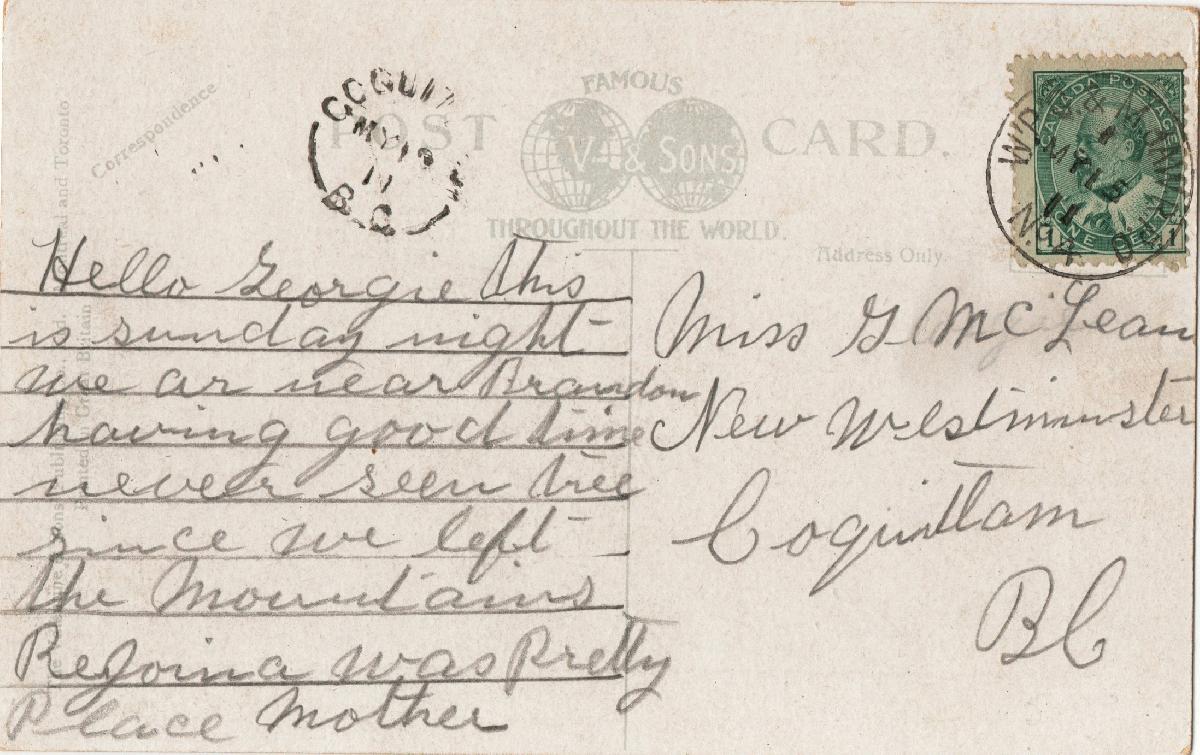 FAMOUS
POST CARD.
V- & SONS
THROUGHOUT THE WORLD.
Correspondence
Address Only.
COQUIT
MY 1
B.C.
W'D &
MY
11
No
CANADA POSTAGE
1 ONE 1
and Toronto
Britain
Hello Georgie this
is sunday night
we ar near Brandon
having good time
never seen tree
since we left
the Mountains
Regoina was Pretty
Place Mother
Miss G McLean
New Westminster
Coquittam
BC